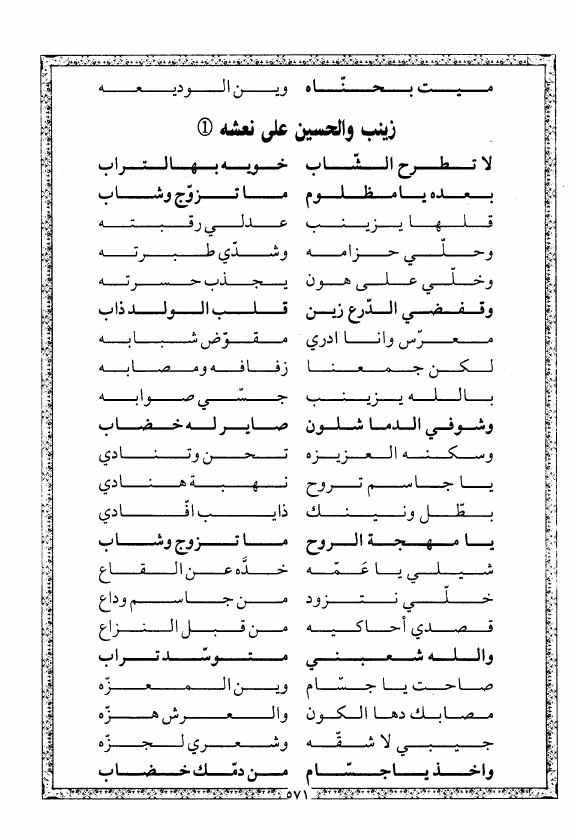 ميت بحنّاه وين الوديعه
زينب والحسين على نعشه ①
لا تطرح الشّاب خويه بهالتراب
بعده يا مظلوم ما تزوّج وشاب
قلها يزينب عدلي رقبته
وحلّي حزامه وشدّي طبرته
وخلّي على هون يجذب حسرته
وقفضي الدّرع زين قلب الولد ذاب
معرّس وانا ادري مقوّض شبابه
لكن جمعنا زفافه ومصابه
بالله يزينب جسّي صوابه
وشوفي الدما شلون صاير له خضاب
وسكنه العزيزه تحن وتنادي
يا جاسم تروح نهبة هنادي
بطّل ونينك ذايب افّادي
يا مهجة الروح ما تزوج وشاب
شيلي يا عَمّه خدَّه عن القاع
خلّي نتزود من جاسم وداع
قصدي أحاكيه من قبل النزاع
والله شعبني متوسّد تراب
صاحت يا جسّام وين المعزّه
مصابك دها الكون والعرش هزّه
جيبي لا شقّه وشعري لجزّه
واخذ يا جسّام من دمّك خضاب
٥٧١